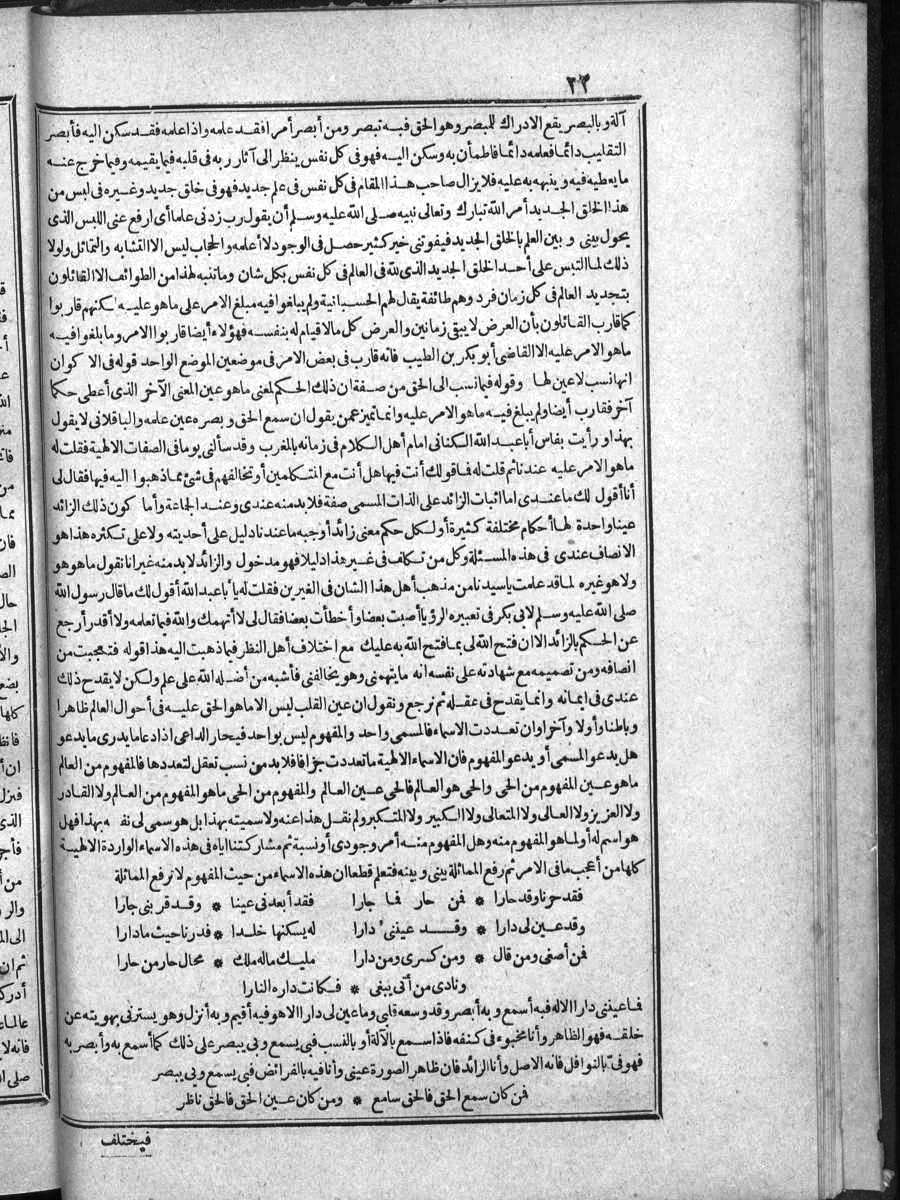 ٢٢
آلة وبالبصر يقع الادراك للمبصر وهو الحق فيه تبصر ومن أبصر أمرا فقد علمه واذا علمه فقد سكن اليه فأبصر
التقليب دائما فعلمه دائما فاطمأن به وسكن اليه فهو فى كل نفس ينظر الى آثار ربه فى قلبه فيما يقيمه وفيما خرج عنه
ما يعطيه فيه وينبهه به عليه فلا يزال صاحب هذا المقام فى كل نفس فى علم جديد فهو فى خلق جديد وغيره فى لبس من
هذا الخلق الجديد أمر الله تبارك وتعالى نبيه صلى الله عليه وسلم أن يقول رب زدنى علما أى ارفع عنى اللبس الذى
يحول بينى وبين العلم بالخلق الجديد فيفوتنى خير كثير حصل فى الوجود لا أعلمه والحجاب ليس الا التشابه والتماثل ولولا
ذلك لما التبس على أحد الخلق الجديد الذى لله فى العالم فى كل نفس بكل شان وما تنبه لهذا من الطوائف الا القائلون
بتجديد العالم فى كل زمان فرد وهم طائفة يقال لهم الحسبانية ولم يبلغوا فيه مبلغ الامر على ما هو عليه لكنهم قاربوا
كما قارب القائلون بأن العرض لا يبقى زمانين والعرض كل ما لا قيام له بنفسه فهؤلاء أيضا قاربوا الامر وما بلغوا فيه
ما هو الامر عليه الا القاضى أبو بكر بن الطيب فانه قارب فى بعض الامر فى موضعين الموضع الواحد قوله فى الاكوان
انها نسب لا عين لها وقوله فيما نسب الى الحق من صفة ان ذلك الحكم لمعنى ما هو عين المعنى الآخر الذى أعطى حكما
آخر فقارب أيضا ولم يبلغ فيه ما هو الامر عليه وانما تميز عمن يقول ان سمع الحق وبصره عين علمه والباقلانى لا يقول
بهذا ورأيت بفاس أبا عبد الله الكنانى امام أهل الكلام فى زمانه بالمغرب وقد سألنى يوما فى الصفات الالهية فقلت له
ما هو الامر عليه عندنا ثم قلت له فما قولك أنت فيها هل أنت مع المتكلمين أو تخالفهم فى شئ مما ذهبوا اليه فيها فقال لى
أنا أقول لك ما عندى اما اثبات الزائد على الذات المسمى صفة فلا بد منه عندى وعند الجماعة وأما كون ذلك الزائد
عينا واحدة لها أحكام مختلفة كثيرة أو لكل حكم معنى زائد أوجبه ما عندنا دليل على أحديته ولا على تكثره هذا هو
الانصاف عندى فى هذه المسئلة وكل من تكلف فى غير هذا دليلا فهو مدخول والزائد لا بد منه غير انا نقول ما هو هو
ولا هو غيره لما قد علمت يا سيدنا من مذهب أهل هذا الشان فى الغيرين فقلت له يا أبا عبد الله أقول لك ما قال رسول الله
صلى الله عليه وسلم لابى بكر فى تعبيره الرؤيا أصبت بعضا وأخطأت بعضا فقال لى لا أتهمك والله فيما تعلمه ولا أقدر أرجع
عن الحكم بالزائد الا ان فتح الله لى بما فتح الله به عليك مع اختلاف أهل النظر فيما ذهبت اليه هذا قوله فتعجبت من
انصافه ومن تصميمه مع شهادته على نفسه انه ما يتهمنى وهو يخالفنى فأشبه من أضله الله على علم ولكن لا يقدح ذلك
عندى فى ايمانه وانما يقدح فى عقله ثم نرجع ونقول ان عين القلب ليس الا ما هو الحق عليه فى أحوال العالم ظاهرا
وباطنا وأولا وآخرا وان تعددت الاسماء فالمسمى واحد والمفهوم ليس بواحد فيحار الداعى اذا دعا ما يدرى ما يدعو
هل يدعو المسمى أو يدعو المفهوم فان الاسماء الالهية ما تعددت جزافا فلا بد من نسب تعقل لتعددها فالمفهوم من العالم
ما هو عين المفهوم من الحى والحى هو العالم فالحى عين العالم والمفهوم من الحى ما هو المفهوم من العالم ولا القادر
ولا العزيز ولا العالى ولا المتعالى ولا الكبير ولا المتكبر ولم نقل هذا عنه ولا سميته بهذا بل هو سمى لى نفسه بهذا فهل
هو اسم له أو لما هو المفهوم منه وهل المفهوم منه أمر وجودى أو نسبة ثم مشاركتنا اياه فى هذه الاسماء الواردة الالهية
كلها من أعجب ما فى الامر ثم رفع المماثلة بينى وبينه فتعلم قطعا ان هذه الاسماء من حيث المفهوم لا ترفع المماثلة
فقد حرنا وقد حارا * فمن حار فما جارا فقد أبعدنى عينا * وقد قربنى جارا
وقد عين لى دارا * وقد عيننى دارا له يسكنها خلدا * فدرنا حيث ما دارا
فمن أصغى ومن قال * ومن كسرى ومن دارا مليك ماله ملك * محال حار من حارا
ونادى من أتى يبغى * فكانت داره النارا
فما عيننى دارا الا له فيه أسمع وبه أبصر وقد وسعه قلبى وما عين لى دارا الا هو فيه أقيم وبه أنزل وهو يسترنى بهويته عن
خلقه فهو الظاهر وأنا مخبوء فى كنفه فاذا سمع بالآلة أو بالنسب فبى يسمع وبى يبصر على ذلك كما أسمع به وأبصر به
فهو فىّ بالنوافل فانه الاصل وأنا الزائد فان ظاهر الصورة عينى وأنا فيه بالفرائض فبى يسمع وبى يبصر
فمن كان سمع الحق فالحق سامع * ومن كان عين الحق فالحق ناظر
فيختلف